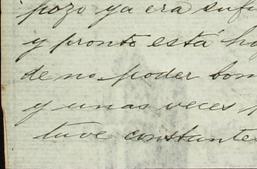 pozo ya era sufi
y pronto está ha
de no poder bom
y unas veces p
tuve constante